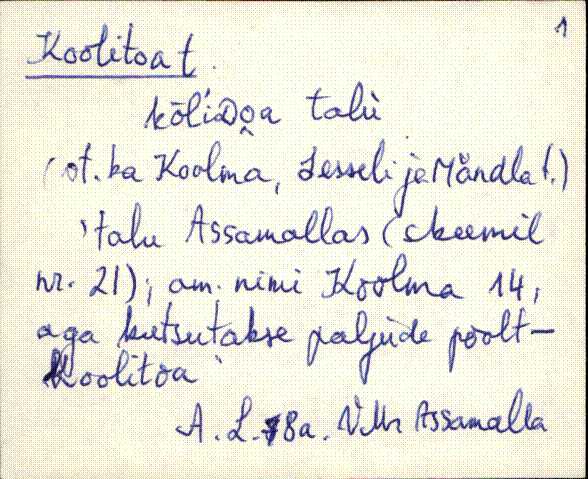 1
Koolitoa t.
kòl'iDoa talù
(vt. ka Koolma, Sesseli ja Mändla t.)
'talu Assamallas (skeemil
nr. 21); am. nimi Koolma 14,
aga kutsutakse paljude poolt –
Koolitoa'
A. L. 78a. VMr Assamalla